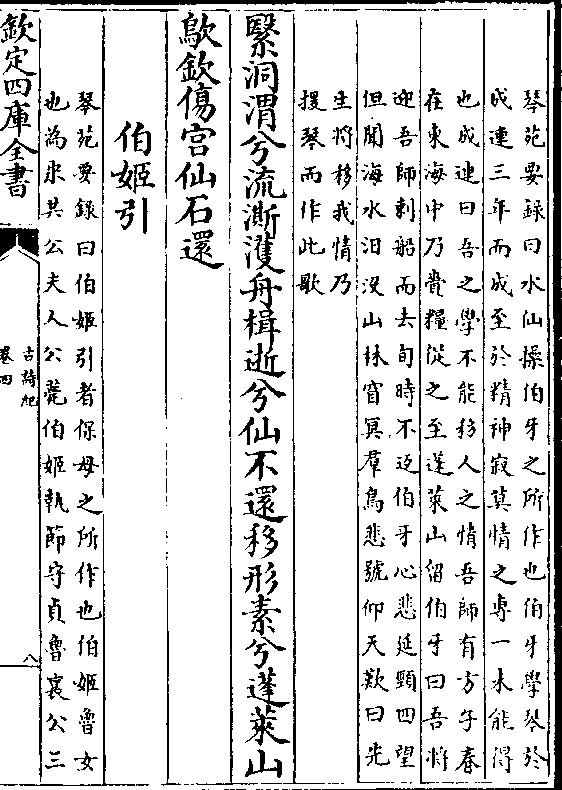 琴苑要録曰水仙操伯牙之所作也伯牙學琴於
成連三年而成至於精神寂寞情之專一未能得
也成連曰吾之學不能移人之情吾師有方子春
在東海中乃賫糧從之至蓬萊山留伯牙曰吾將
迎吾師刺船而去旬時不返伯牙心悲延頸四望
但聞海水汨没山林窅冥羣鳥悲號仰天歎曰先
生將移我情乃
援琴而作此歌
繄洞渭兮流澌濩舟楫逝兮仙不還移形素兮蓬萊山
歍欽傷宫仙石還
伯姬引
琴苑要録曰伯姬引者保母之所作也伯姬魯女
也為宋共公夫人公薨伯姬執節守貞魯襄公三
欽定四庫全書
古詩紀
卷四
八